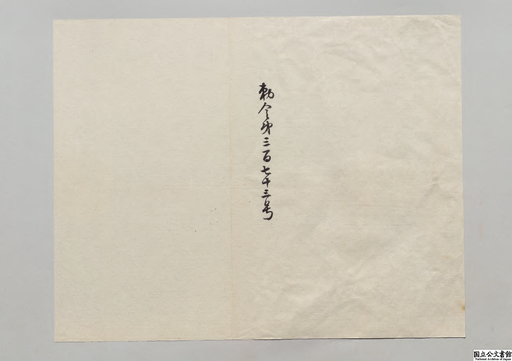 勅令第三百七十三号
国立公文書館
National Archives of Japan